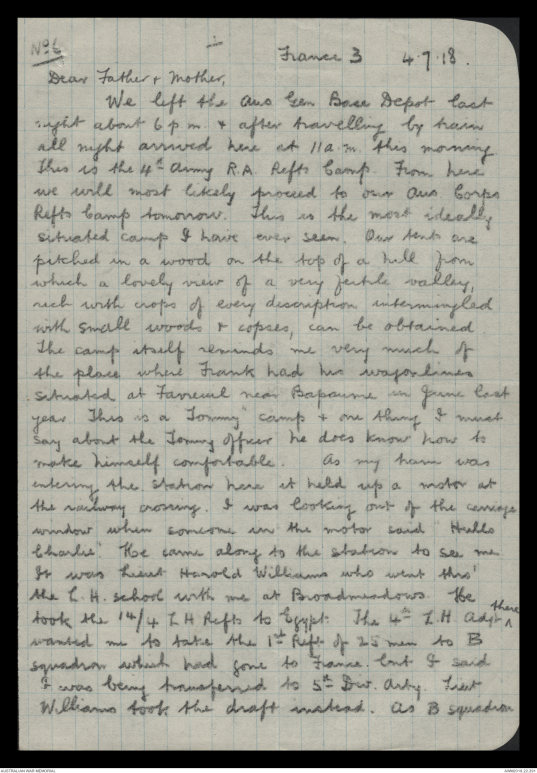 No 6
France 3   4.7.18.
Dear Father & Mother,
We left the Aus Gen Base Depot last
night about 6 p.m. & after travelling by train
all night arrived here at 11 a.m. this morning.
This is the 4th Army R.A. Refts Camp. From here
we will most likely proceed to our Aus Corps
Refts Camp tomorrow. This is the most ideally
situated camp I have ever seen. Our tents are
pitched in a wood on the top of a hill from
which a lovely view of a very fertile valley,
rich with crops of every description intermingled
with small woods & copses, can be obtained.
The camp itself reminds me very much of
the place where Frank had his wagon lines
situated at Favreuil near Bapaume in June last
year. This is a "Tommy" camp & one thing I must
say about the Tommy officer he does know how to
make himself comfortable. As my train was
entering the station here it held up a motor at
the railway crossing. I was looking out of the carriage
window when someone in the motor said "Hullo
Charlie". He came along to the station to see me
It was Lieut Harold Williams who went thro'
the L.H. school with me at Broadmeadows. He
took the 14/4 L H Refts to Egypt. The 4th L.H. Adgt there
wanted me to take the 1st Reft of 25 men to B
squadron which had gone to France but I said
I was being transferred to 5th Div. Arty. Lieut
Williams took the draft instead. As B squadron
AUSTRALIAN WAR MEMORIAL